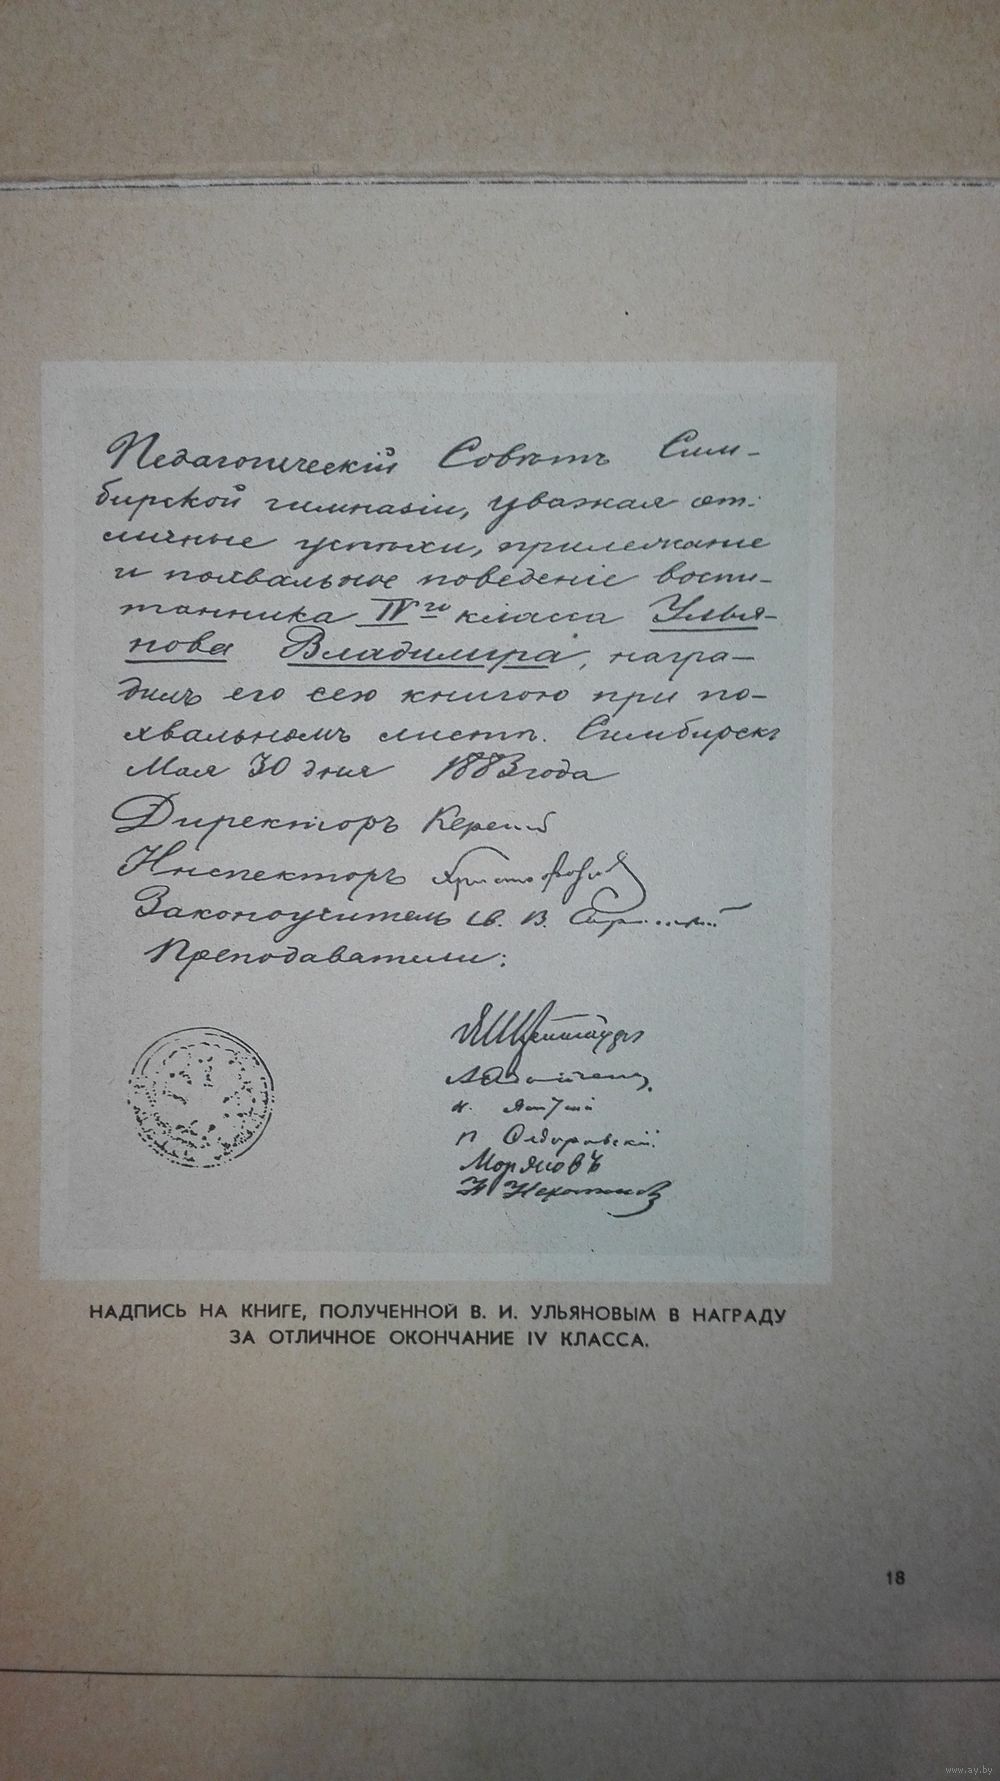 Педагогическій Совѣтъ Сим-
бирской гимназіи, уважая от-
личные успѣхи, прилежаніе
и похвальное поведеніе воспи-
танника IVго класса Улья-
нова Владиміра, награ-
дилъ его сею книгою при по-
хвальномъ листѣ. Симбирскъ
Мая 30 дня 1883 года
Директоръ Керенскій
Инспекторъ
Законоучитель св. В.
Преподаватели:
П Ѳедоровскій.
Моряновъ
НАДПИСЬ НА КНИГЕ, ПОЛУЧЕННОЙ В. И. УЛЬЯНОВЫМ В НАГРАДУ
ЗА ОТЛИЧНОЕ ОКОНЧАНИЕ IV КЛАССА.
18
www.ay.by